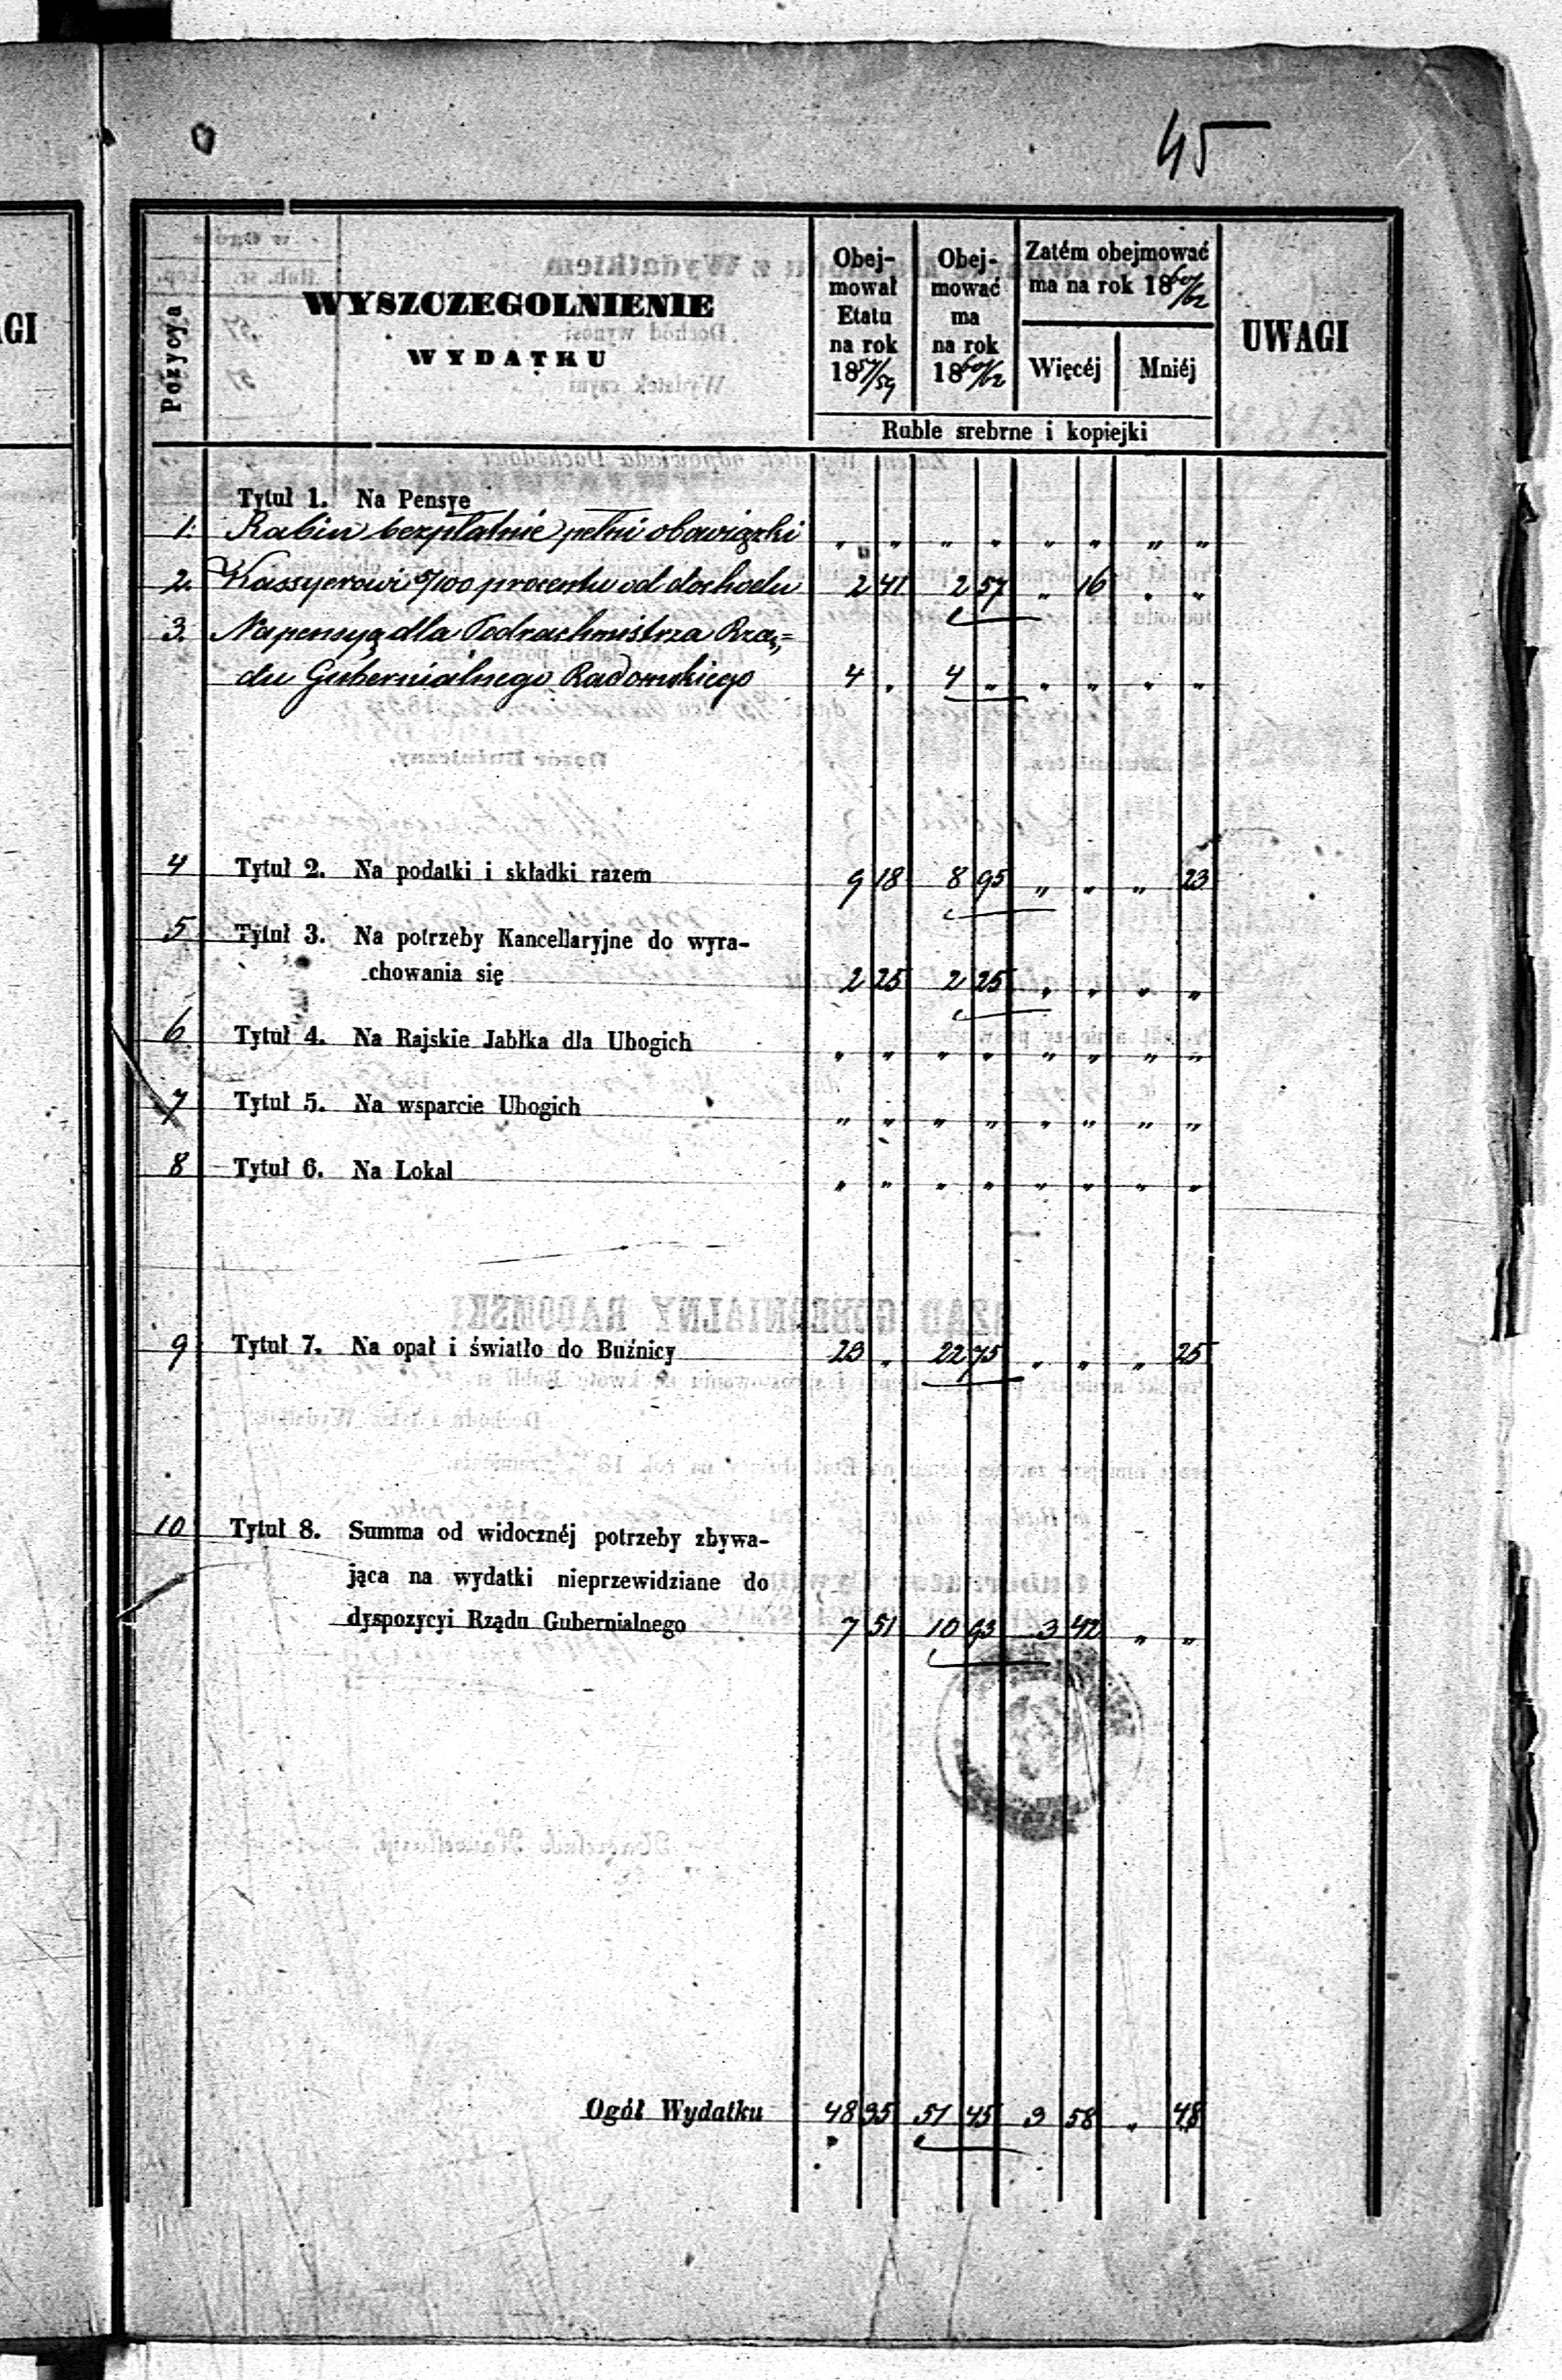 45
AGI
Pozycya
WYSZCZEGOLNIENIE
WYDATKU
Obej-
mował
Etatu
na rok
18 57/59
Obej-
mować
ma
na rok
18 60/62
Zatém obejmować
ma na rok 18 60/62
Więcéj
Mniéj
UWAGI
Ruble srebrne i kopiejki
Tytuł 1. Na Pensye
1. Rabin bezpłatnie pełni obowiązki „ „ „ „ „ „ „ „
2. Kassyerowi 5/100 procentu od dochodu 2 41 2 57 „ 16 „ „
3. Na pensyą dla Podrachmistrza Rzą=
du Gubernialnego Radomskiego 4 „ 4 „ „ „ „ „
4 Tytuł 2. Na podatki i składki razem 9 18 8 95 „ „ „ 23
5 Tytuł 3. Na potrzeby Kancellaryjne do wyra-
chowania się 2 25 2 25 „ „ „ „
6 Tytuł 4. Na Rajskie Jabłka dla Ubogich „ „ „ „ „ „ „ „
7 Tytuł 5. Na wsparcie Ubogich „ „ „ „ „ „ „ „
8 Tytuł 6. Na Lokal „ „ „ „ „ „ „ „
9 Tytuł 7. Na opał i światło do Buźnicy 23 „ 22 75 „ „ „ 25
10 Tytuł 8. Summa od widocznéj potrzeby zbywa-
jąca na wydatki nieprzewidziane do
dyspozycyi Rządu Gubernialnego 7 51 10 93 3 42 „ „
Ogół Wydatku 48 35 51 45 3 58 „ 48